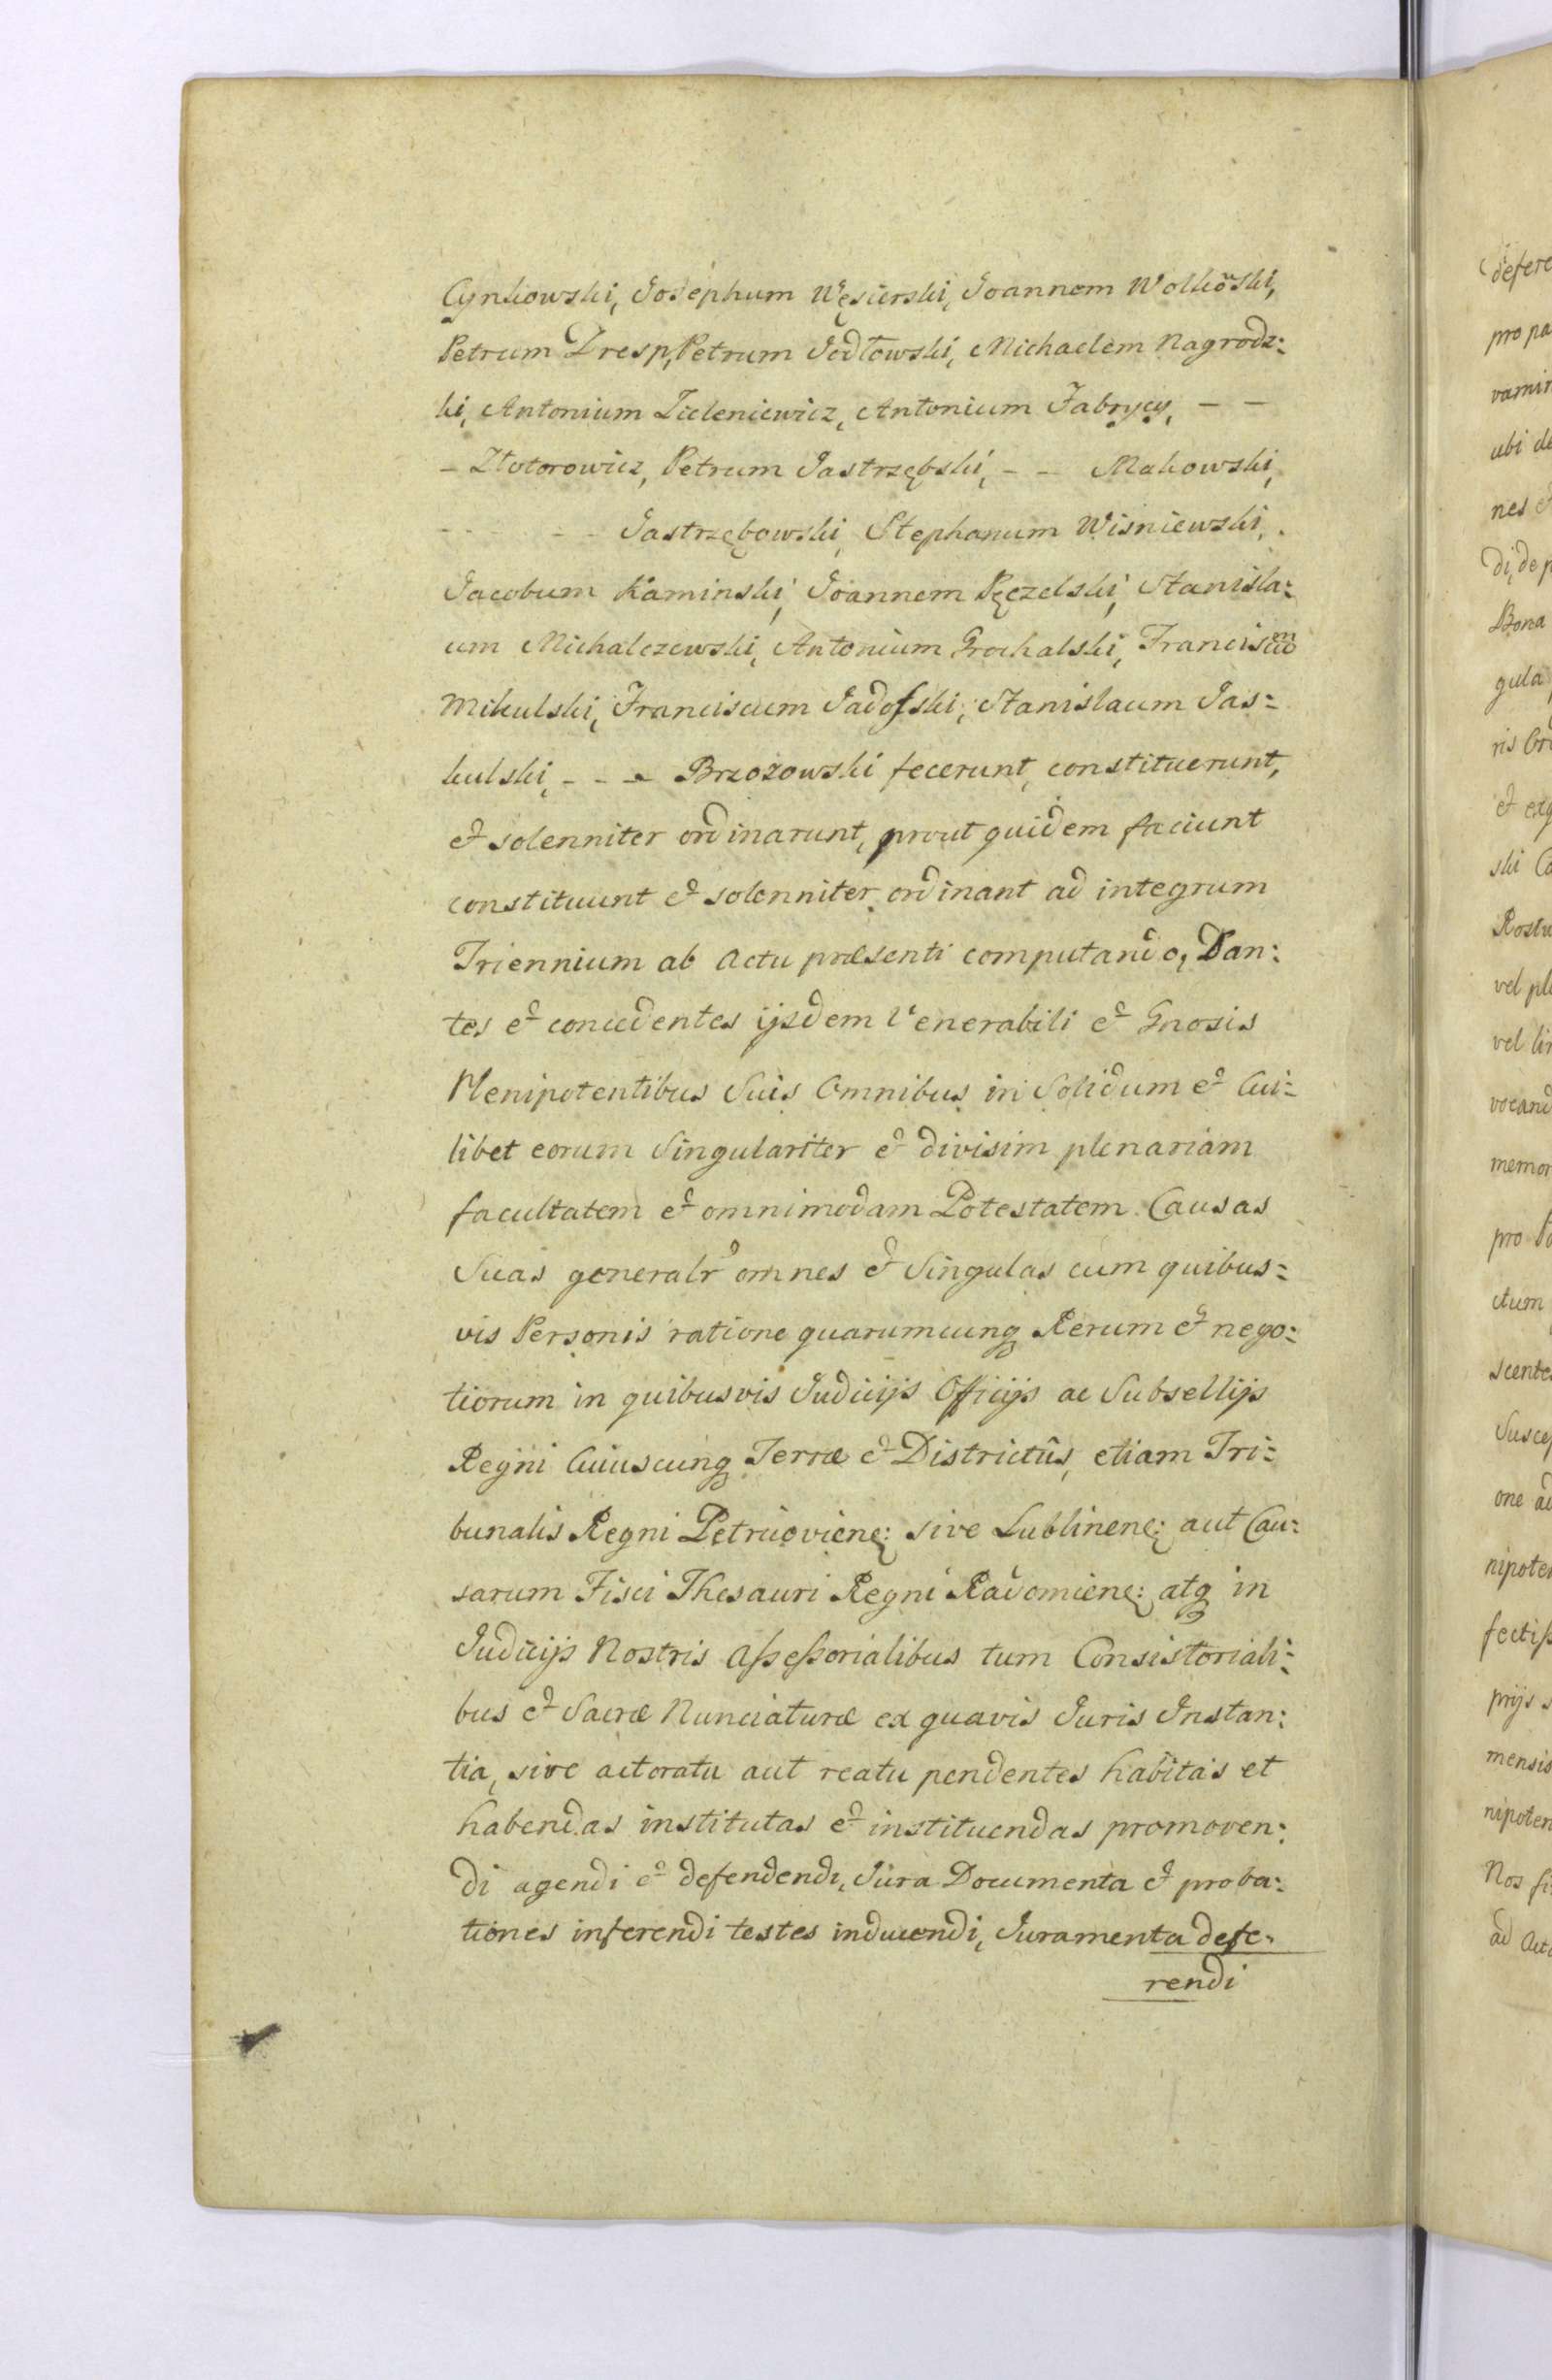 Cynkowski, Josephum Węsierski, Joannem Wolkoski,
Petrum Dresp, Petrum Jodłowski, Michaelem Nagrodz:
ki, Antonium Zieleniewicz, Antonium Fabrycy, – –
– Złotorowicz, Petrum Jastrzębski, – – Makowski,
– – – – Jastrzębowski, Stephanum Wisniewski,
Jacobum Kaminski, Joannem Pęczelski, Stanisla:
um Michalczewski, Antonium Grochalski, Franciscum
Mikulski, Franciscum Sadofski, Stanislaum Jas:
kulski, – – – Brzozowski fecerunt, constituerunt,
et solenniter ordinarunt, prout quidem faciunt
constituunt et solenniter ordinant ad integrum
Triennium ab Actu præsenti computando, Dan:
tes et concedentes ijsdem Venerabili et Gnosis
Plenipotentibus Suis Omnibus in Solidum et Cui:
libet eorum Singulariter et divisim plenariam
facultatem et omnimodam Potestatem Causas
Suas generalr omnes et Singulas cum quibus:
vis Personis ratione quarumcunq Rerum et nego:
tiorum in quibusvis Judicijs Officijs ac Subsellijs
Regni Cuiuscunq Terræ et Districtûs, etiam Tri:
bunalis Regni Petricoviene: sive Lublinene: aut Cau:
sarum Fisci Thesauri Regni Radomiene: atq in
Judicijs Nostris Assessorialibus tum Consistoriali:
bus et Sacræ Nunciaturæ ex quavis Juris Instan:
tia, sive actoratu aut reatu pendentes habitas et
habendas institutas et instituendas promoven:
di agendi et defendendi, Jura Documenta et proba:
tiones inferendi testes inducendi, Juramenta defe:
rendi